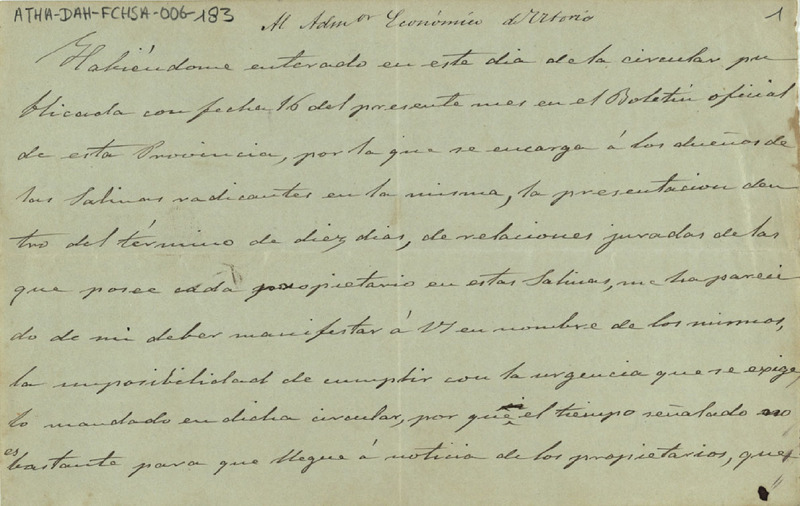 ATHA-DAH-FCHSA-006-183
1
Al Admor Económico d Vitoria
Habiéndome enterado en este dia de la circular pu
blicada con fecha 16 del presente mes en el Boletin oficial
de esta Provincia, por la que se encarga á los dueños de
las Salinas radicantes en la misma, la presentacion den
tro del término de diez dias, de relaciones juradas de las
que posee cada propietario en estas Salinas, me ha pareci
do de mi deber manifestar á V en nombre de los mismos,
la imposibilidad de cumplir con la urgencia que se exige,
lo mandado en dicha circular, por que el tiempo señalado no
es bastante para que llegue á noticia de los propietarios, que